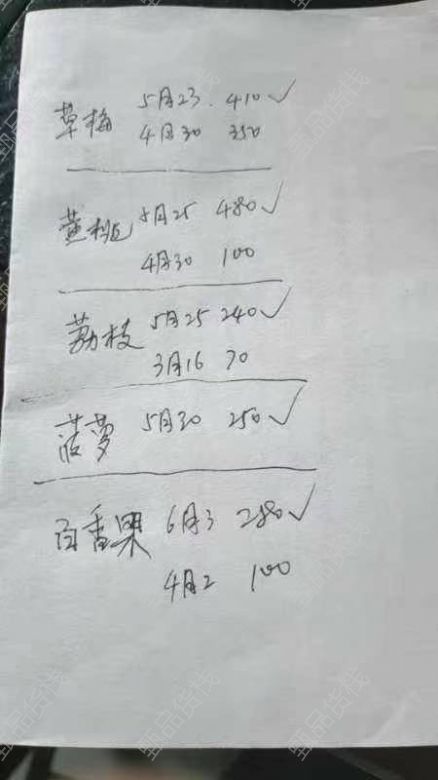 草莓 5月23. 410✓
4月30 350
黄桃 5月25 480✓
4月30 100
荔枝 5月25 240✓
3月16 70
菠萝 5月30 250✓
百香果 6月3 280✓
4月2 100